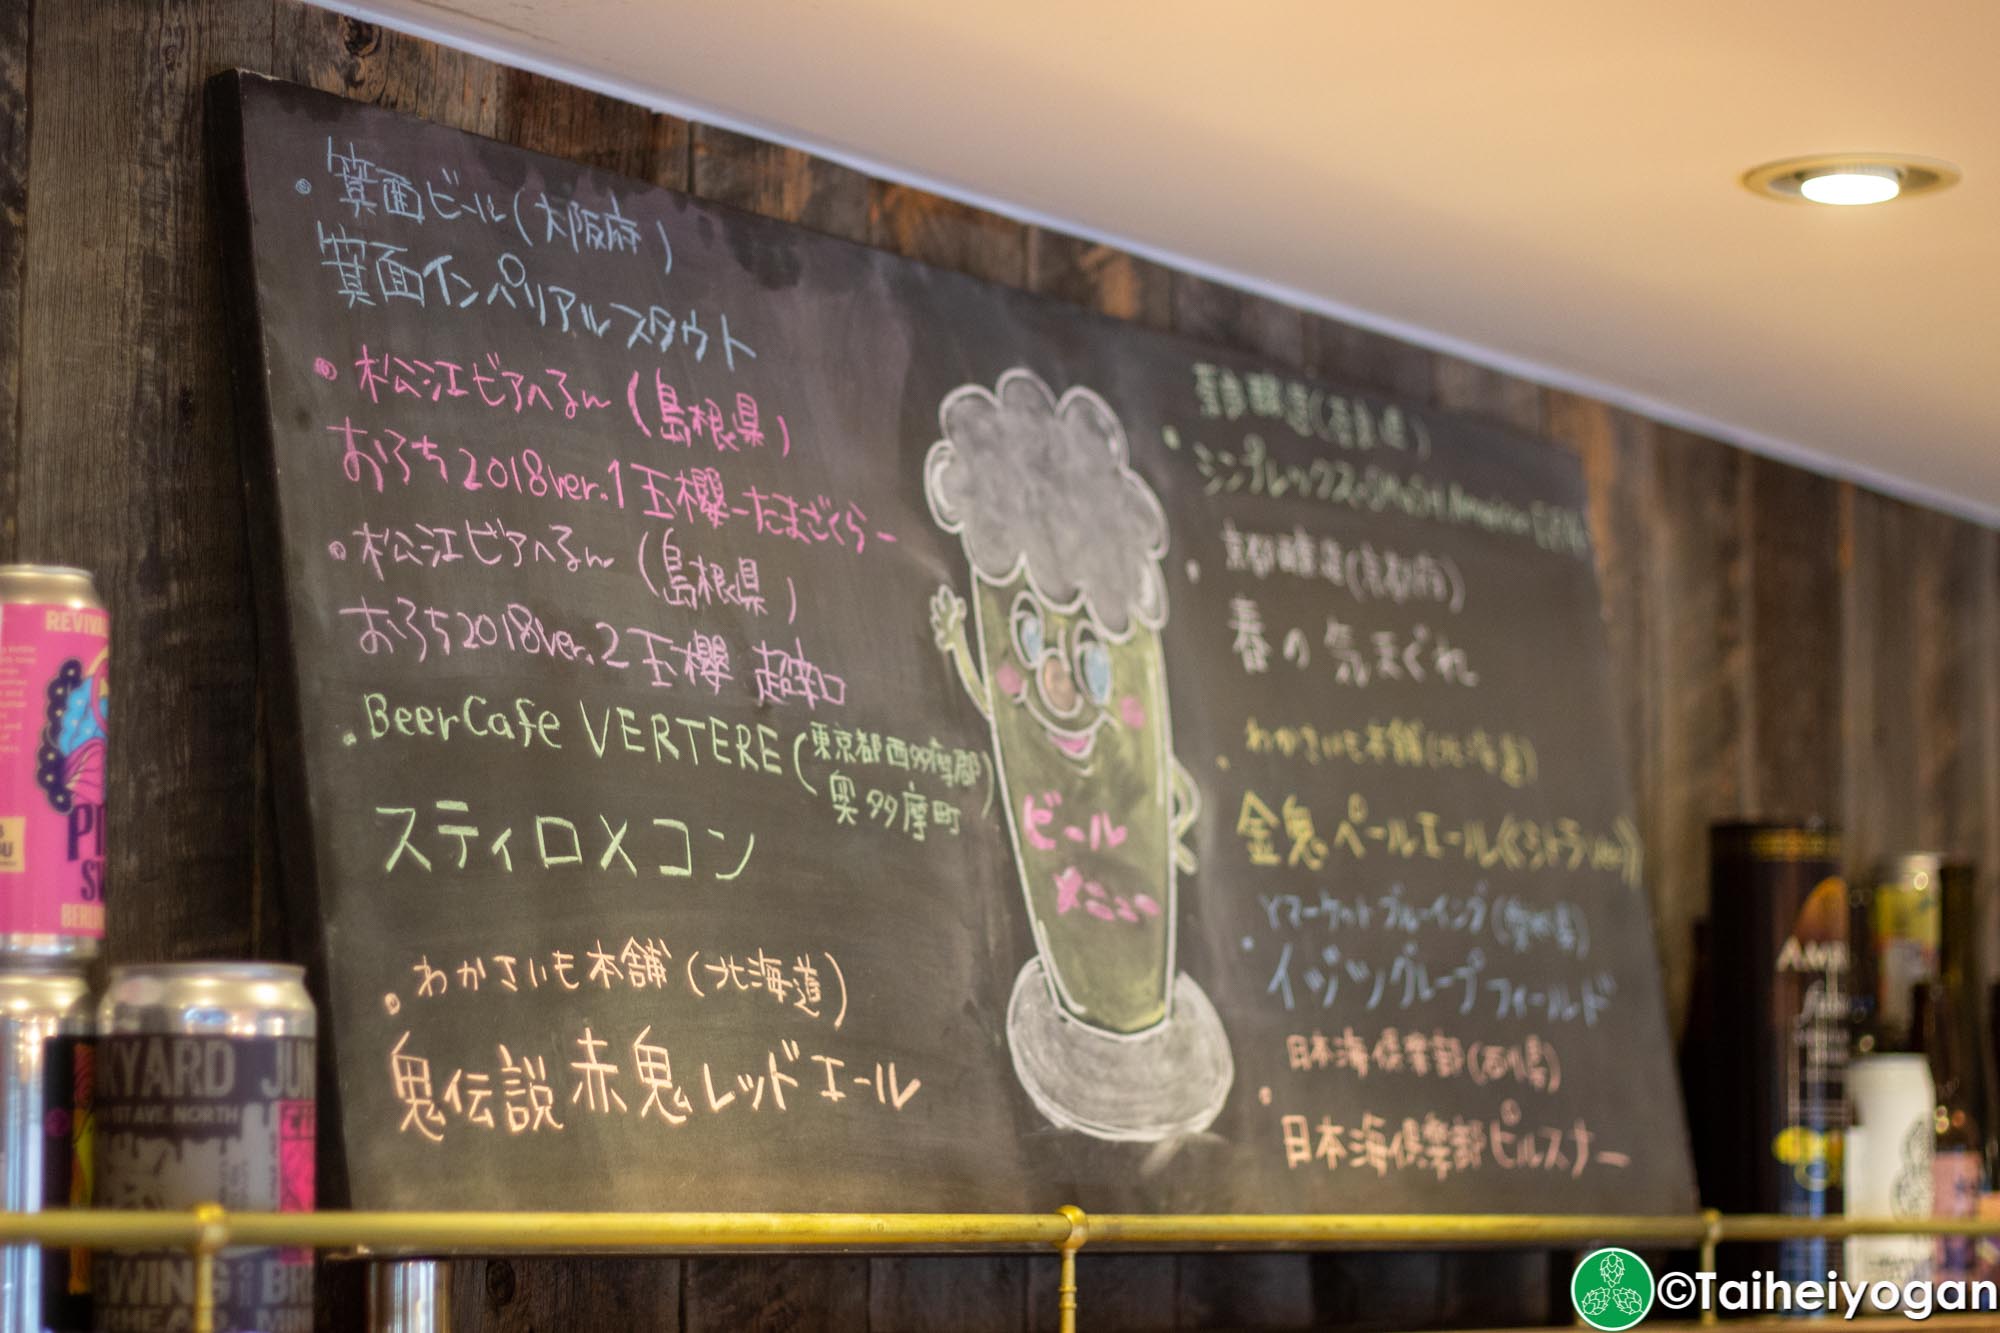 箕面ビール(大阪府)
箕面インペリアルスタウト
松江ビアへるん(島根県)
おろち2018ver.1玉櫻-たまざくら-
松江ビアへるん(島根県)
おろち2018ver.2玉櫻 超辛口
BeerCafe VERTERE(東京都西多摩郡
奥多摩町)
スティロメコン
わかさいも本舗(北海道)
鬼伝説 赤鬼レッドエール
ビール
メニュー
奈良醸造(奈良県)
シンプレックス-SMaSH American
京都醸造(京都府)
春の気まぐれ
わかさいも本舗(北海道)
金鬼ペールエール《シトラver》
Yマーケットブルーイング(愛知県)
イジツグループフィールド
日本海倶楽部(石川県)
日本海倶楽部ピルスナー
REVIVAL
BERLIN
YARD JUN
1ST AVE. NORTH
©Taiheiyogan